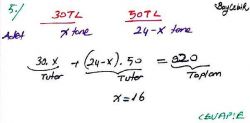 5./ 30TL 50TL Baycebir
Adet x tane 24-x tane
30.x + (24-x).50 = 920
Tutar Tutar Toplam
x=16
CEVAP:E